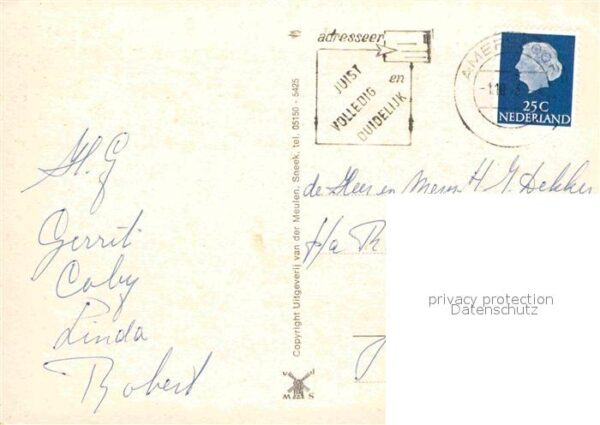 H. G
Gerrit
Coby
Linda
Robert
Copyright Uitgeverij van der Meulen, Sneek, tel. 05150 - 5425
M S
adresseer
JUIST
VOLLEDIG
en
DUIDELIJK
25 C
NEDERLAND
de Heer en Mevr H G Dekker
privacy protection
Datenschutz